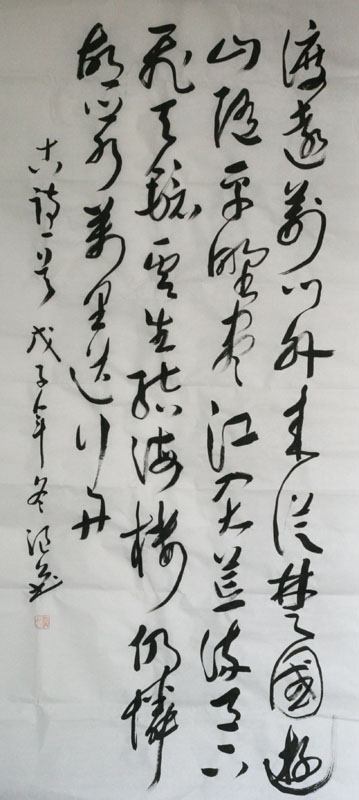 渡遠荆门外来從楚國遊
山随平野盡江入大荒流月下
飛天鏡雲生結海樓仍憐
故鄉水萬里送行舟
古詩一首 戊子年冬